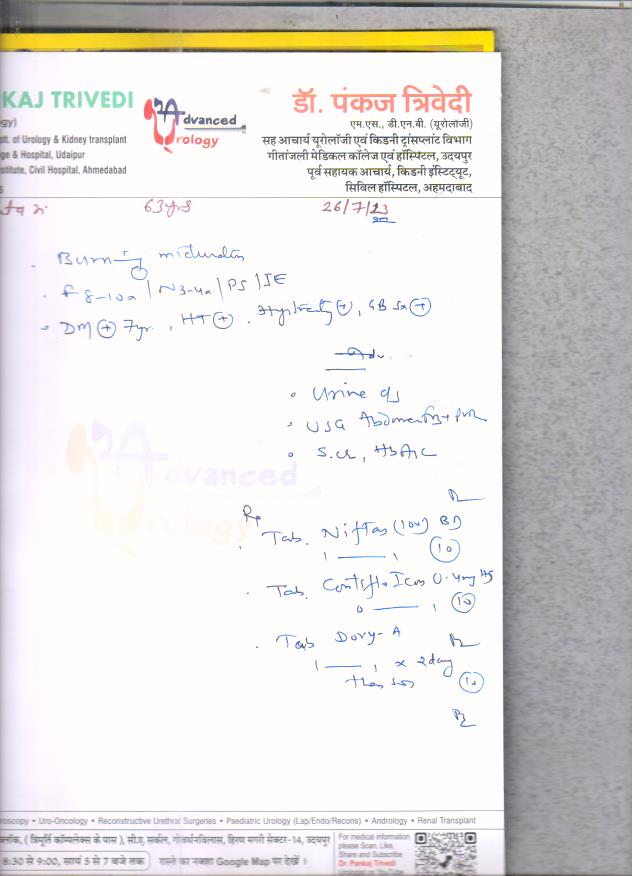 KAJ TRIVEDI
gy)
t. of Urology & Kidney transplant
ge & Hospital, Udaipur
stitute, Civil Hospital, Ahmedabad
Advanced
Urology
डॉ. पंकज त्रिवेदी
एम.एस., डी.एन.बी. (यूरोलॉजी)
सह आचार्य यूरोलॉजी एवं किडनी ट्रांसप्लांट विभाग
गीतांजली मेडिकल कॉलेज एवं हॉस्पिटल, उदयपुर
पूर्व सहायक आचार्य, किडनी इंस्टिट्यूट,
सिविल हॉस्पिटल, अहमदाबाद
63yrs 26/7/23
Burning micturation
F 8-10x / N3-4x / PS / IE
DM + 7yr, HT +, +, GB Sx +
Adv
Urine c/s
USG Abdomen + PVR
S.cr, HbA1c
Advanced
Urology
Rx
Tab. Niftas (100) BD
1 — 1 10
Tab. Contiflo Icon 0.4mg HS
0 — 1 10
Tab Dovy-A
1 — 1 x 2day
then sos 10
roscopy • Uro-Oncology • Reconstructive Urethral Surgeries • Paediatric Urology (Lap/Endo/Recons) • Andrology • Renal Transplant
ब्लॉक, ( त्रिमूर्ति कॉम्पलेक्स के पास ), सी.ए. सर्कल, गोवर्धनविलास, हिरण मगरी सेक्टर-14, उदयपुर
8:30 से 9:00, सायं 5 से 7 बजे तक रास्ते का नक्शा Google Map पर देखें ।
For medical information
please Scan, Like,
Share and Subscribe
Dr. Pankaj Trivedi
Urologist on YouTube